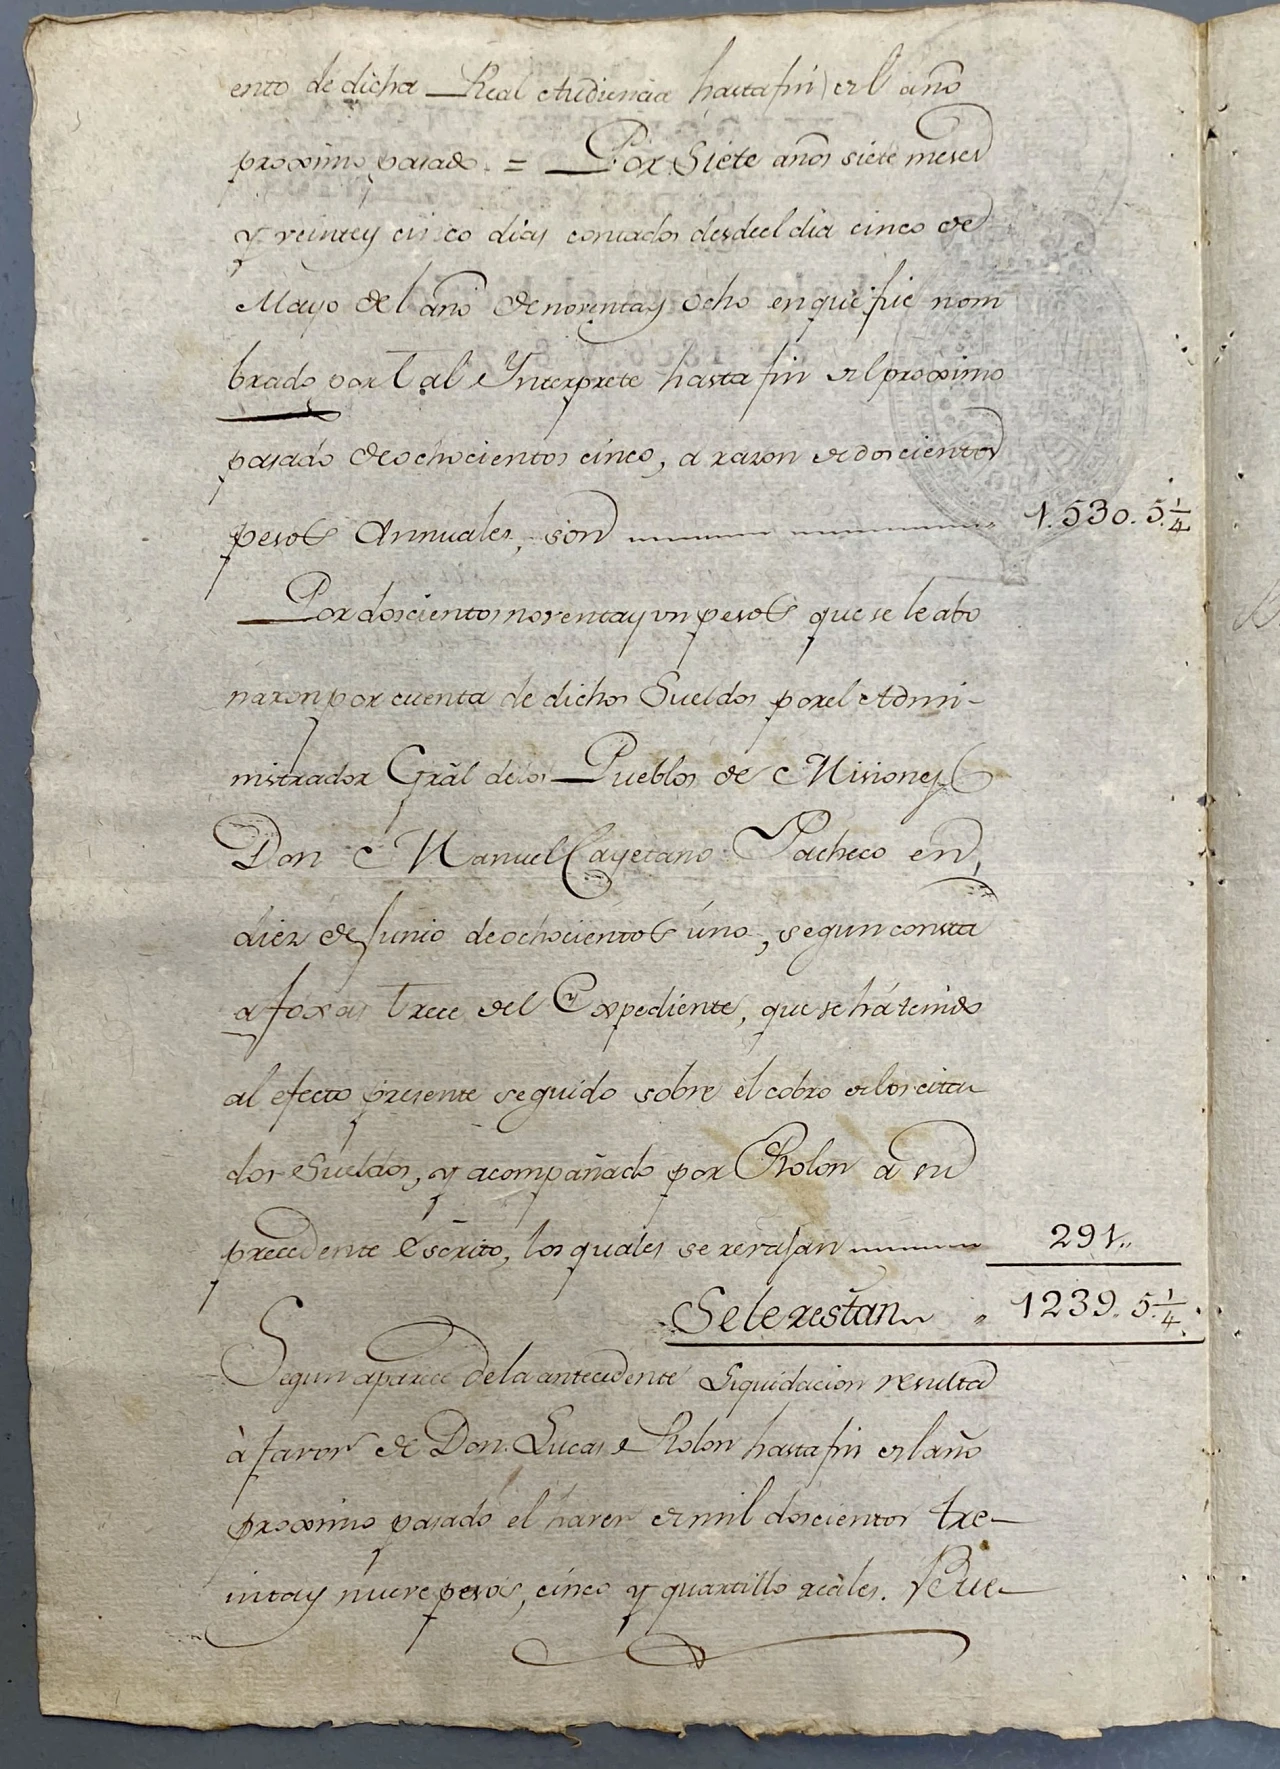 ento de dicha Real Audiencia hasta fin del año
proximo pasado. = Por Siete años siete meses
y veinte y cinco dias contados desde el dia cinco de
Mayo del año de noventa y ocho en que fue nom
brado por tal Ynterprete hasta fin del proximo
pasado de ochocientos cinco, a razon de doscientos
pesos Annuales, son 1.530. 5 1/4
Por doscientos noventa y un pesos que se le abo
naron por cuenta de dichos Sueldos por el Admi-
nistrador Grãl de los Pueblos de Misiones
Don Manuel Cayetano Pacheco en
diez de Junio de ochocientos úno, segun consta
a foxas trece del Expediente, que se há tenido
al efecto presente seguido sobre el cobro de los cita
dos Sueldos, y acompañado por Rolon a su
precedente Escrito, los quales se revajan 291..
Se le restan 1239. 5 1/4
Segun aparece de la antecedente Liquidacion resulta
à favor de Don Lucas Rolon hasta fin del año
proximo pasado el haver de mil doscientos tre-
inta y nueve pesos, cinco y quartillo reales.